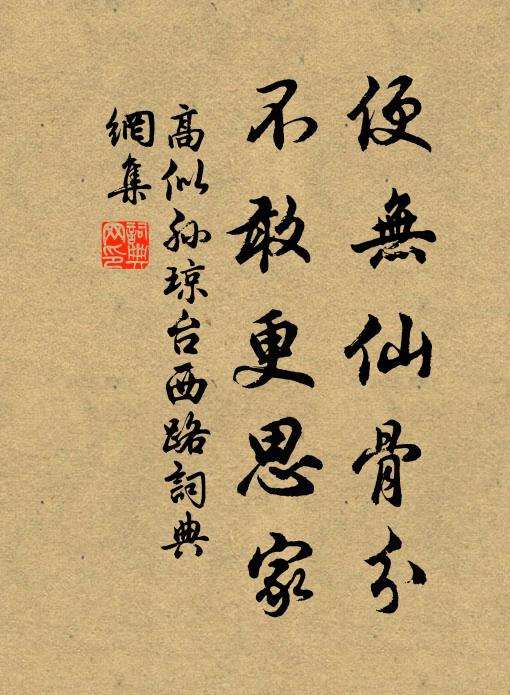 便無仙骨分
不敢更思家
高似孫琼台西路詞典
網集
詞典
网印